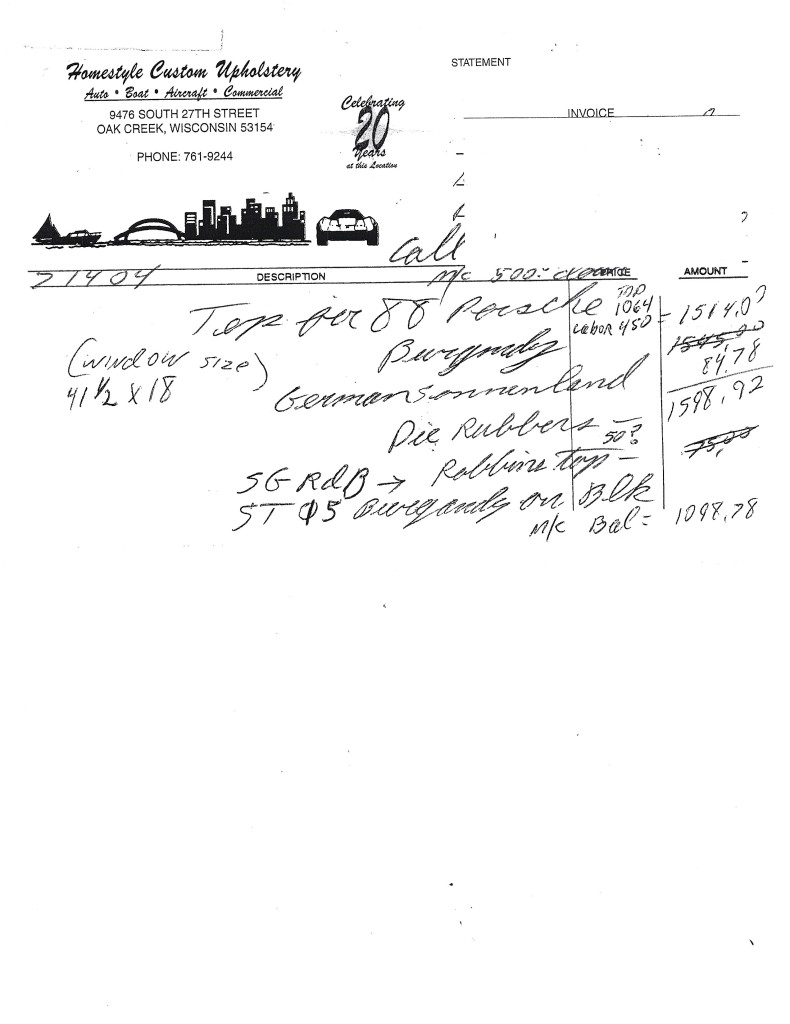 Homestyle Custom Upholstery
Auto • Boat • Aircraft • Commercial
9476 SOUTH 27TH STREET
OAK CREEK, WISCONSIN 53154
PHONE: 761-9244
Celebrating
20
Years
at this Location
STATEMENT
INVOICE
Call
21404 DESCRIPTION M/c 500.- PRICE AMOUNT
Top for 88 Porsche TOP 1064 = 1514.0
Labor 450
(WINDOW SIZE) Burgundy 1545.00
84.78
41 1/2 X 18 German Sonnenland 1598.92
Pie Rubbers 50? 75.00
SG RdB → Robbins top -
ST 05 Burgandy on Blk
M/c Bal = 1098.78